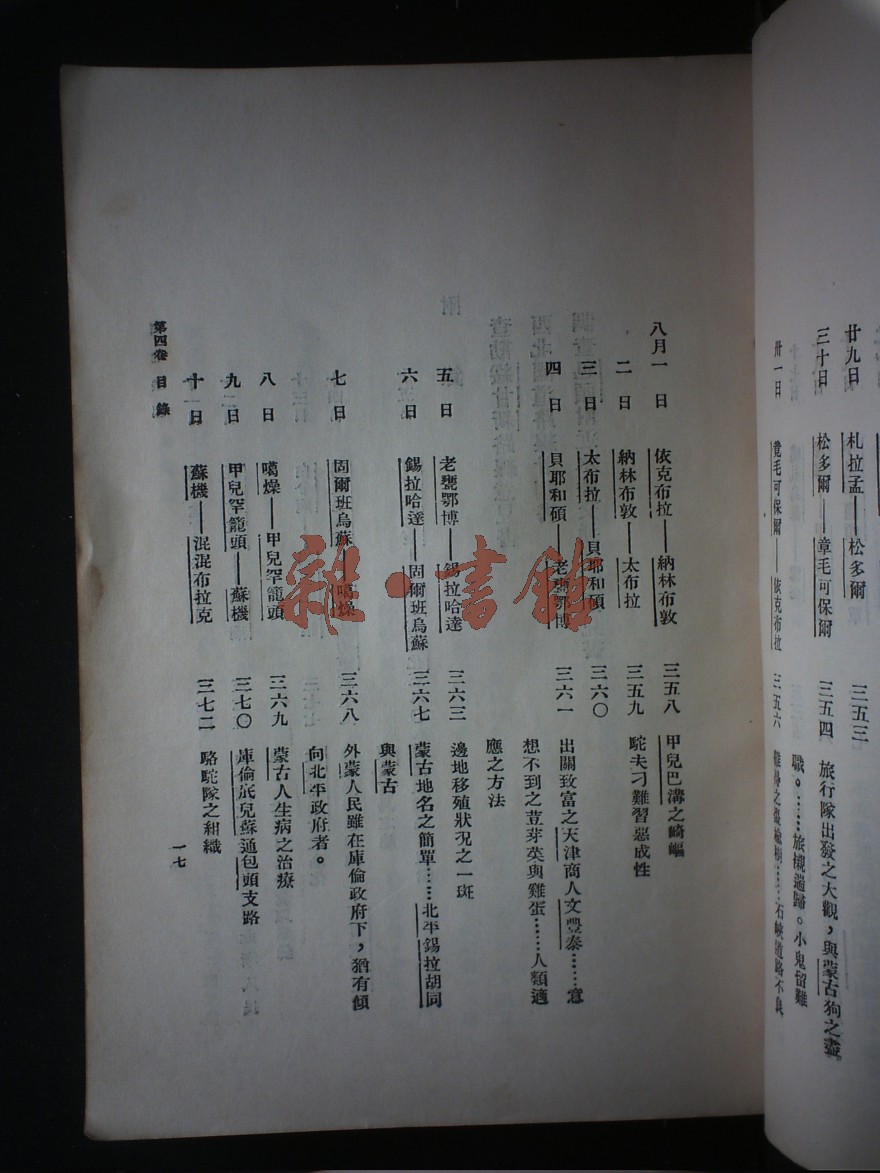 廿九日　札拉孟——松多爾　三五三
三十日　松多爾——章毛可保爾　三五四　旅行隊出發之大觀，與蒙古狗之盡
職。……旅櫬遄歸。小鬼留難
卅一日　毛可保爾——依克布拉　三五六　石峽道路不良
八月一日　依克布拉——納林布敦　三五八　甲兒巴溝之崎嶇
二日　納林布敦——太布拉　三五九　駝夫刁難習惡成性
三日　太布拉——貝耶和碩　三六〇
四日　貝耶和碩——老甕鄂博　三六一　出關致富之天津商人文豐泰……意
想不到之荳芽菜與雞蛋……人類適
應之方法
五日　老甕鄂博——錫拉哈達　三六三　邊地移殖狀況之一斑
六日　錫拉哈達——固爾班烏蘇　三六七　蒙古地名之簡單……北平錫拉胡同
與蒙古
七日　固爾班烏蘇——噶燥　三六八　外蒙人民雖在庫倫政府下，猶有傾
向北平政府者。
八日　噶燥——甲兒罕籠頭　三六九　蒙古人生病之治療
九日　甲兒罕籠頭——蘇機　三七〇　庫倫底兒蘇通包頭支路
十一日　蘇機——混混布拉克　三七二　駱駝隊之組織
第四卷　目錄
一七
雜·書館